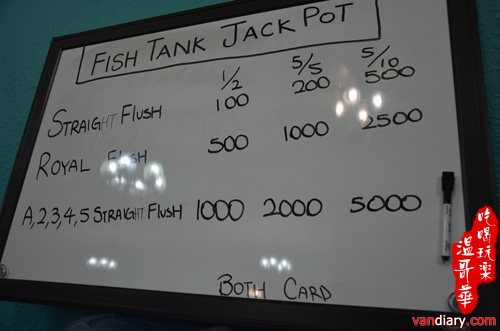 FISH TANK JACK POT
1/2 5/5 5/10
STRAIGHT FLUSH 100 200 500
ROYAL FLUSH 500 1000 2500
A,2,3,4,5 STRAIGHT FLUSH 1000 2000 5000
BOTH CARD
吃喝玩樂
溫哥華
vandiary.com